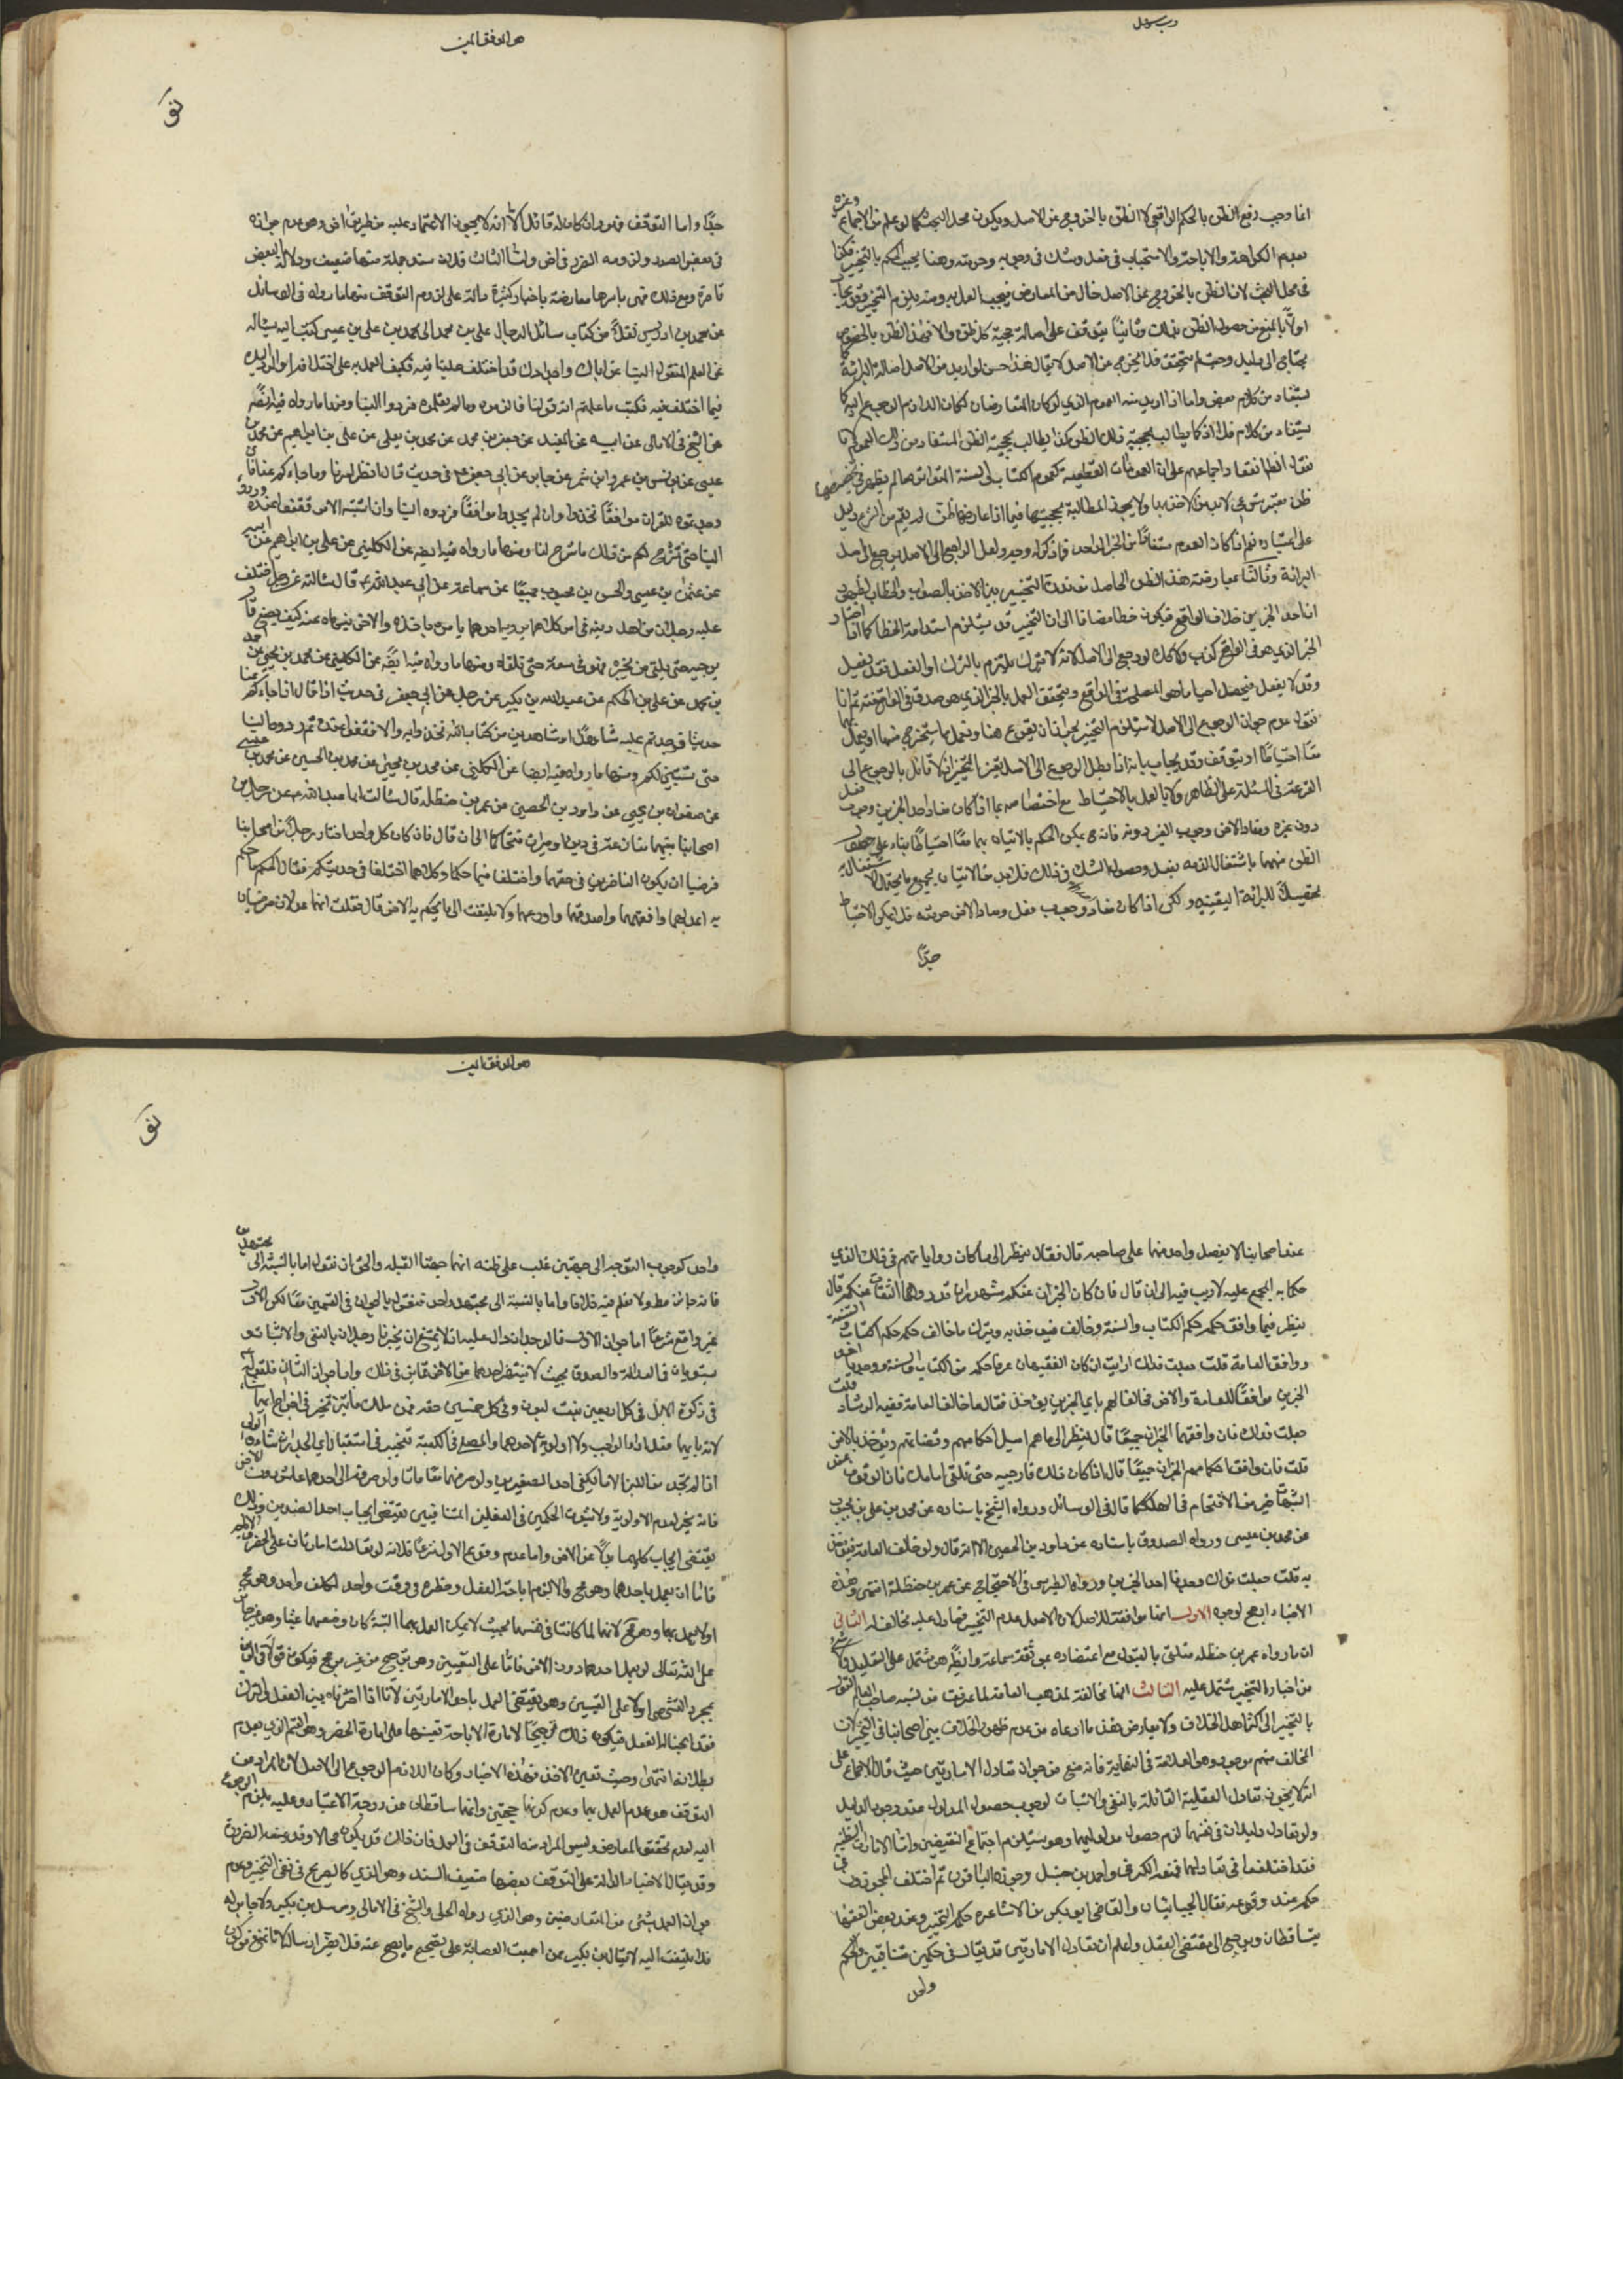 هو الموفق المعين
انما وجب رفع الظن بالحكم الواقعي لا الظن بالخروج عن الاصل ويكون محل البحث كما لو علم من الاجماع وغيره
عدم الكراهة والاباحة والاستحباب في فعل وشك في وجوبه وحرمته وهنا يجب الحكم بالتخيير فكذا
في محل البحث لان الظن بالخروج عن الاصل خال من المعارض فيجب العمل به ومنه يلزم التخيير وقد يجاب
اولا بالمنع من حصول الظن بذلك وثانيا يتوقف على اصالة حجية كل ظن والا فهذا الظن بالخصوص
يحتاج الى دليل وحيث لم يتحقق فلا يخرج عن الاصل لا يقال هذا حسن لو اريد من الاصل اصالة البرائة كما
يستفاد من كلام بعض واما اذا اريد منه العموم الذي لو كان المتعارضان لكان اللازم الرجوع اليه كما
يستفاد من كلام فلا اذ كما يطالب بحجية ذلك الظن كذا يطالب بحجية الظن المستفاد من ذلك العموم لانا
نقول الظاهر انعقاد اجماعهم على ان العمومات القطعية كعموم الكتاب والسنة المتواترة ما لم يظهر في تخصيصها
ظن معتبر شرعي لا بد من الاخذ بها ولا يجوز المطالبة بحجيتها فيما اذا عارضها ظن لم يقم من الشرع دليل
على اعتباره نعم اذا كان العموم مستفادا من الخبر الواحد فما ذكر له وجه ولعل الراجح الى الاصل يرجع الى اصل
البرائة وثالثا بمعارضة هذا الظن الحاصل
ان احد الخبرين خلاف الواقع فيكون خطا مضافا الى ان التخيير قد يستلزم استدامة الخطا كما اذا اختار
الخبر الذي هو في الواقع كذب ولا كذلك لو رجع الى الاصل لانه لا يترك ملتزم بالترك او الفعل فقد يفعل
وقد لا يفعل فيحصل احيانا ما هو المصلحة في الواقع ويتحقق العمل بالخبر الذي هو صدق في الواقع ثم انا
نقول عدم جواز الرجوع الى الاصل لا يستلزم التخيير لجواز ان يقرع هنا ونعمل بما يستخرج منهما او نعمل بهما
معا احتياطا او يتوقف وقد يجاب بانه اذا بطل الرجوع الى الاصل تعين التخيير اذ لا قائل بالرجوع الى
القرعة في المسئلة على الظاهر ولا بالعمل بالاحتياط مع اختصاصه بما اذا كان مفاد احد الخبرين وجوب فعل
دون غيره ومفاد الاخر وجوب الغير دونه فانه ح يمكن الحكم بالاتيان بهما معا احتياطا بناء على حصول
الظن منهما باشتغال الذمة بفعل وحصول الشك في ذلك فلا بد من الاتيان بجميع ما يحتمل الاشتغال به
تحصيلا للبرائة اليقينية ولكن اذا كان مفاد وجوب فعل ومفاد الاخر حرمته فلا يمكن الاحتياط
جدا
جدا واما التوقف فهو وان كان له قائل الا انه لا يجوز الاعتماد عليه من طريق اخر وهو عدم جوازه
في بعض الصور ولزومه الضرر في اخر واما الثالث فلان سند جملة منها ضعيف ودلالة البعض
قاصرة ومع ذلك فهي باسرها معارضة باخبار كثيرة دالة على لزوم التوقف منها ما رواه في الوسائل
عن محمد بن ادريس نقلا من كتاب مسائل الرجال علي بن محمد ان محمد بن علي بن عيسى كتب اليه يساله
عن العلم المنقول الينا عن ابائك واجدادك قد اختلف علينا فيه فكيف العمل به على اختلافه او الرد اليك
فيما اختلف فيه فكتب ما علمتم انه قولنا فالزموه وما لم تعلموه فردوه الينا ومنها ما رواه فيه ايضا
عن الشيخ في الامالي عن ابيه عن المفيد عن جعفر بن محمد عن محمد بن يعقوب عن علي بن ابراهيم عن محمد بن
عيسى عن يونس عن عمرو بن شمر عن جابر عن ابي جعفر ع في حديث قال انظروا امرنا وما جاءكم عنا فان
وجدتموه للقران موافقا فخذوا به وان لم تجدوه موافقا فردوه الينا وان اشتبه الامر فقفوا عنده وردوه
الينا حتى نشرح لكم من ذلك ما شرح لنا ومنها ما رواه فيه ايضا عن الكليني عن علي بن ابراهيم عن ابيه
عن عثمان بن عيسى والحسن بن محبوب جميعا عن سماعة عن ابي عبد الله ع قال سالته عن رجل اختلف
عليه رجلان من اهل دينه في امر كلاهما يرويه احدهما يامر باخذه والاخر ينهاه عنه كيف يصنع قال
يرجيه حتى يلقى من يخبره فهو في سعة حتى يلقاه ومنها ما رواه فيه ايضا عن الكليني عن محمد بن يحيى عن احمد
بن محمد عن علي بن الحكم عن عبد الله بن بكير عن رجل عن ابي جعفر في حديث اذا قال اذا جاءكم عنا
حديث فوجدتم عليه شاهدا او شاهدين من كتاب الله فخذوا به والا فقفوا عنده ثم ردوه الينا
حتى يستبين لكم ومنها ما رواه فيه ايضا عن الكليني عن محمد بن يحيى عن محمد بن الحسين عن محمد بن عيسى
عن صفوان بن يحيى عن داود بن الحصين عن عمر بن حنظلة قال سالت ابا عبد الله ع عن رجلين من
اصحابنا بينهما منازعة في دين او ميراث فتحاكما الى ان قال فان كان كل واحد اختار رجلا من اصحابنا
فرضيا ان يكونا الناظرين في حقهما واختلفا فيما حكما وكلاهما اختلفا في حديثكم فقال الحكم ما حكم
به اعدلهما وافقههما واصدقهما واورعهما ولا يلتفت الى ما يحكم به الاخر قال فقلت انهما عدلان مرضيان
هو الموفق المعين
عند اصحابنا لا يفضل واحد منهما على صاحبه قال فقال ينظر الى ما كان رواياتهم في ذلك الذي
حكما به المجمع عليه لا ريب فيه الى ان قال فان كان الخبران عنكم مشهورين قد رواهما الثقات عنكم قال
ينظر فيما وافق حكمه حكم الكتاب والسنة وخالف فيؤخذ به ويترك ما خالف حكمه حكم الكتاب والسنة
ووافق العامة قلت جعلت فداك ارايت ان كان الفقيهان عرفا حكمه من الكتاب والسنة ووجدنا احد
الخبرين موافقا للعامة والاخر مخالفا لهم باي الخبرين يؤخذ فقال ما خالف العامة ففيه الرشاد قلت
جعلت فداك فان وافقهما الخبران جميعا قال ينظر الى ما هم اميل احكامهم وقضاتهم ويؤخذ بالاخر
قلت فان وافقا حكامهم الخبران جميعا قال اذا كان ذلك فارجه حتى تلقى امامك فان الوقوف عند
الشبهات خير من الاقتحام في الهلكة قال في الوسائل ورواه الشيخ باسناده عن محمد بن علي بن محبوب
عن محمد بن عيسى ورواه الصدوق باسناده عن داود بن الحصين الا انه قال وخالف العامة فيؤخذ
به قلت جعلت فداك وجدنا احد الخبرين ورواه الطبرسي في الاحتجاج عن عمر بن حنظلة انتهى وهذه
الاخبار ارجح لوجوه الاول انها موافقة للاصل لان الاصل عدم التخيير فما دل عليه مخالف له الثاني
ان ما رواه عمر بن حنظلة متلقى بالقبول مع اعتضاده بموثقة سماعة وايضا هو مشتمل على التعليل ولا شيء
من اخبار التخيير يشتمل عليه الثالث انها مخالفة لمذهب العامة لما عرفت من نسبة صاحب المعالم القول
بالتخيير الى اكثر اهل الخلاف ولا يعارض هذا ما ادعاه من عدم ظهور الخلاف بين اصحابنا في التخيير لان
المخالف منهم موجود وهو العلامة في النهاية فانه منع من جواز تعادل الامارتين حيث قال الاجماع على
انه لا يجوز تعادل العقلية القائلة بالنفي والاثبات لوجوب حصول المدلول عند وجود الدليل
ولو تعادل دليلان في نفسهما لزم حصول مدلوليهما وهو يستلزم اجتماع النقيضين واما الامارات الظنية
فقد اختلفوا في تعادلها فمنعه الكرخي واحمد بن حنبل وجوزه الباقون ثم اختلف المجوزون في
حكمه عند وقوعه فقال الجبائيان والقاضي ابو بكر من الاشاعرة حكمه التخيير وعند بعض الفقهاء
يتساقطان ويرجع الى مقتضى العقل واعلم ان تعادل الامارتين قد يقال في حكمين متنافيين والحكم
واحد
واحد كوجوب التوجه الى جهتين غلب على ظنه انهما جهتا القبلة والحق ان نقول اما بالنسبة الى مجتهدين
فانه جائز مطلقا ولا نعلم فيه خلافا واما بالنسبة الى مجتهد واحد فنقول بالجواز في القسمين معا لكن الاول
غير واقع شرعا اما جواز الاول فالوجدان دال عليه اذ لا يمتنع ان يخبرنا رجلان بالنفي والاثبات و
يستويان في العدالة والصدق بحيث لا يتفضل احدهما من الاخر في ذلك واما جواز الثاني فلقوله ع
في زكوة الابل في كل اربعين بنت لبون وفي كل خمسين حقه فمن ملك مائتين تخير في اخراج ايهما شاء
لانه بايهما فعل ادى الواجب ولا اولوية لاحدهما والمصلي في الكعبة يتخير في استقبال اي الجدران شاء
فانه يخير لعدم الاولوية ولان ثبوت الحكمين في الفعلين المتنافيين يقتضي ايجاب احد الضدين وذلك
يقتضي ايجاب كليهما بدلا عن الاخر واما عدم وقوع الاول شرعا فلانه لو تعادلت امارتان على الحظر والاباحة
فاما ان يعمل باحدهما وهو مح والا لزم اباحة الفعل وحظره في وقت واحد لمكلف واحد وهو مح
او لا يعمل بهما وهو مح لانهما لما كانتا في نفسهما بحيث لا يمكن العمل بهما البتة كان وضعهما عبثا وهو غير جائز
على الله تعالى او يعمل باحدهما دون الاخر فاما على التعيين وهو ترجيح من غير مرجح فيكون قولا في الدين
بمجرد التشهي او لا على التعيين وهو يقتضي العمل باحدى الامارتين لانا اذا خيرناه بين الفعل والترك
فقد ابحنا له الفعل فيكون ذلك ترجيحا لامارة الاباحة بعينها على امارة الحظر وهو القسم الذي تقدم
بطلانه انتهى وحيث تعين الاخذ بهذه الاخبار وكان اللازم الرجوع الى الاصل لان المراد من
التوقف هو عدم العمل بهما وعدم كونهما حجتين وانهما ساقطان عن درجة الاعتبار وعليه يلزم الرجوع
اليه لعدم تحقق المعارض وليس المراد منه التوقف في العمل فان ذلك قد يكون محالا وقد يوجب الضرر
وقد يقال الاخبار الدالة على التوقف بعضها ضعيف السند وهو الذي كالصريح في نفي التخيير وعدم
جواز العمل بشيء من المتعارضين وهو الذي رواه الحلي والشيخ في الامالي ومرسل بن بكير ولا جابر له
فلا يلتفت اليه لا يقال ابن بكير ممن اجمعت العصابة على تصحيح ما يصح عنه فلا يضر ارساله لانا نمنع من كون